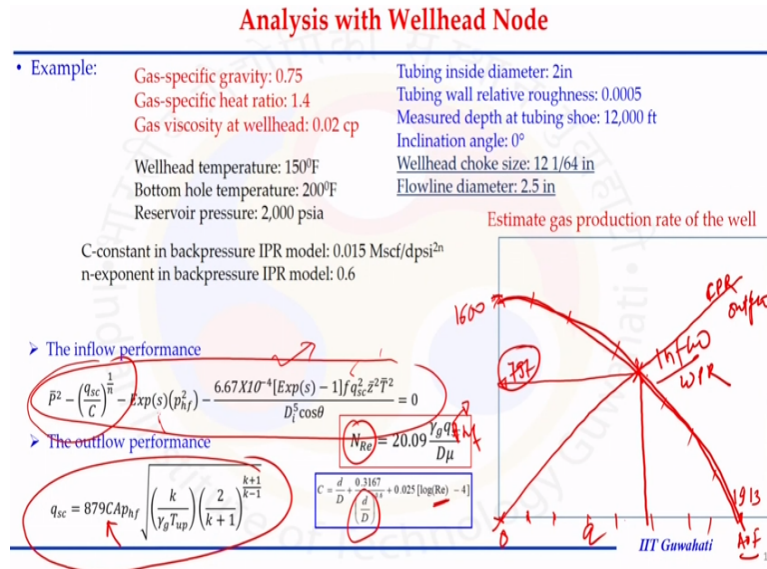 Analysis with Wellhead Node
• Example:
Gas-specific gravity: 0.75
Gas-specific heat ratio: 1.4
Gas viscosity at wellhead: 0.02 cp
Wellhead temperature: 150⁰F
Bottom hole temperature: 200⁰F
Reservoir pressure: 2,000 psia
C-constant in backpressure IPR model: 0.015 Mscf/dpsi²ⁿ
n-exponent in backpressure IPR model: 0.6
Tubing inside diameter: 2in
Tubing wall relative roughness: 0.0005
Measured depth at tubing shoe: 12,000 ft
Inclination angle: 0°
Wellhead choke size: 12 1/64 in
Flowline diameter: 2.5 in
Estimate gas production rate of the well
➢ The inflow performance
p̄² − (q_sc/C)^(1/n) − Exp(s)(p_hf²) − 6.67X10⁻⁴[Exp(s) − 1]f q_sc² z̄² T̄² / (D_i⁵ cosθ) = 0
➢ The outflow performance
q_sc = 879CAp_hf √((k/(γ_g T_up)) (2/(k+1))^((k+1)/(k−1)))
N_Re = 20.09 γ_g q / (Dμ)
C = d/D + 0.3167/(d/D)^0.6 + 0.025[log(Re) − 4]
1600
797
CPR
Inflow
WPR
1913
0
q
AOF
IIT Guwahati